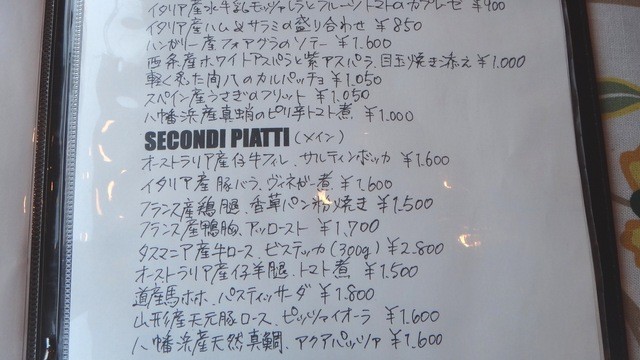 イタリア産水牛乳モッツァレラとフルーツトマトのカプレーゼ ¥900
イタリア産ハム&サラミの盛り合わせ ¥850
ハンガリー産フォアグラのソテー ¥1.600
西条産ホワイトアスパラと紫アスパラ、目玉焼き添え ¥1.000
軽く炙た間八のカルパッチョ ¥1.050
スペイン産うさぎのフリット ¥1.050
八幡浜産真蛸のピリ辛トマト煮 ¥1.000
SECONDI PIATTI (メイン)
オーストラリア産仔牛フィレ、サルティンボッカ ¥1.600
イタリア産豚バラ、ヴィネガー煮 ¥1.600
フランス産鶏腿、香草パン粉焼き ¥1.500
フランス産鴨胸、アッロースト ¥1,700
タスマニア産牛ロース、ビステッカ(300g) ¥2.800
オーストラリア産仔羊腿、トマト煮 ¥1.500
道産馬ホホ、パスティッサーダ ¥1.800
山形産天元豚ロース、ピッツァイオーラ ¥1.600
八幡浜産天然真鯛、アクアパッツァ ¥1.600